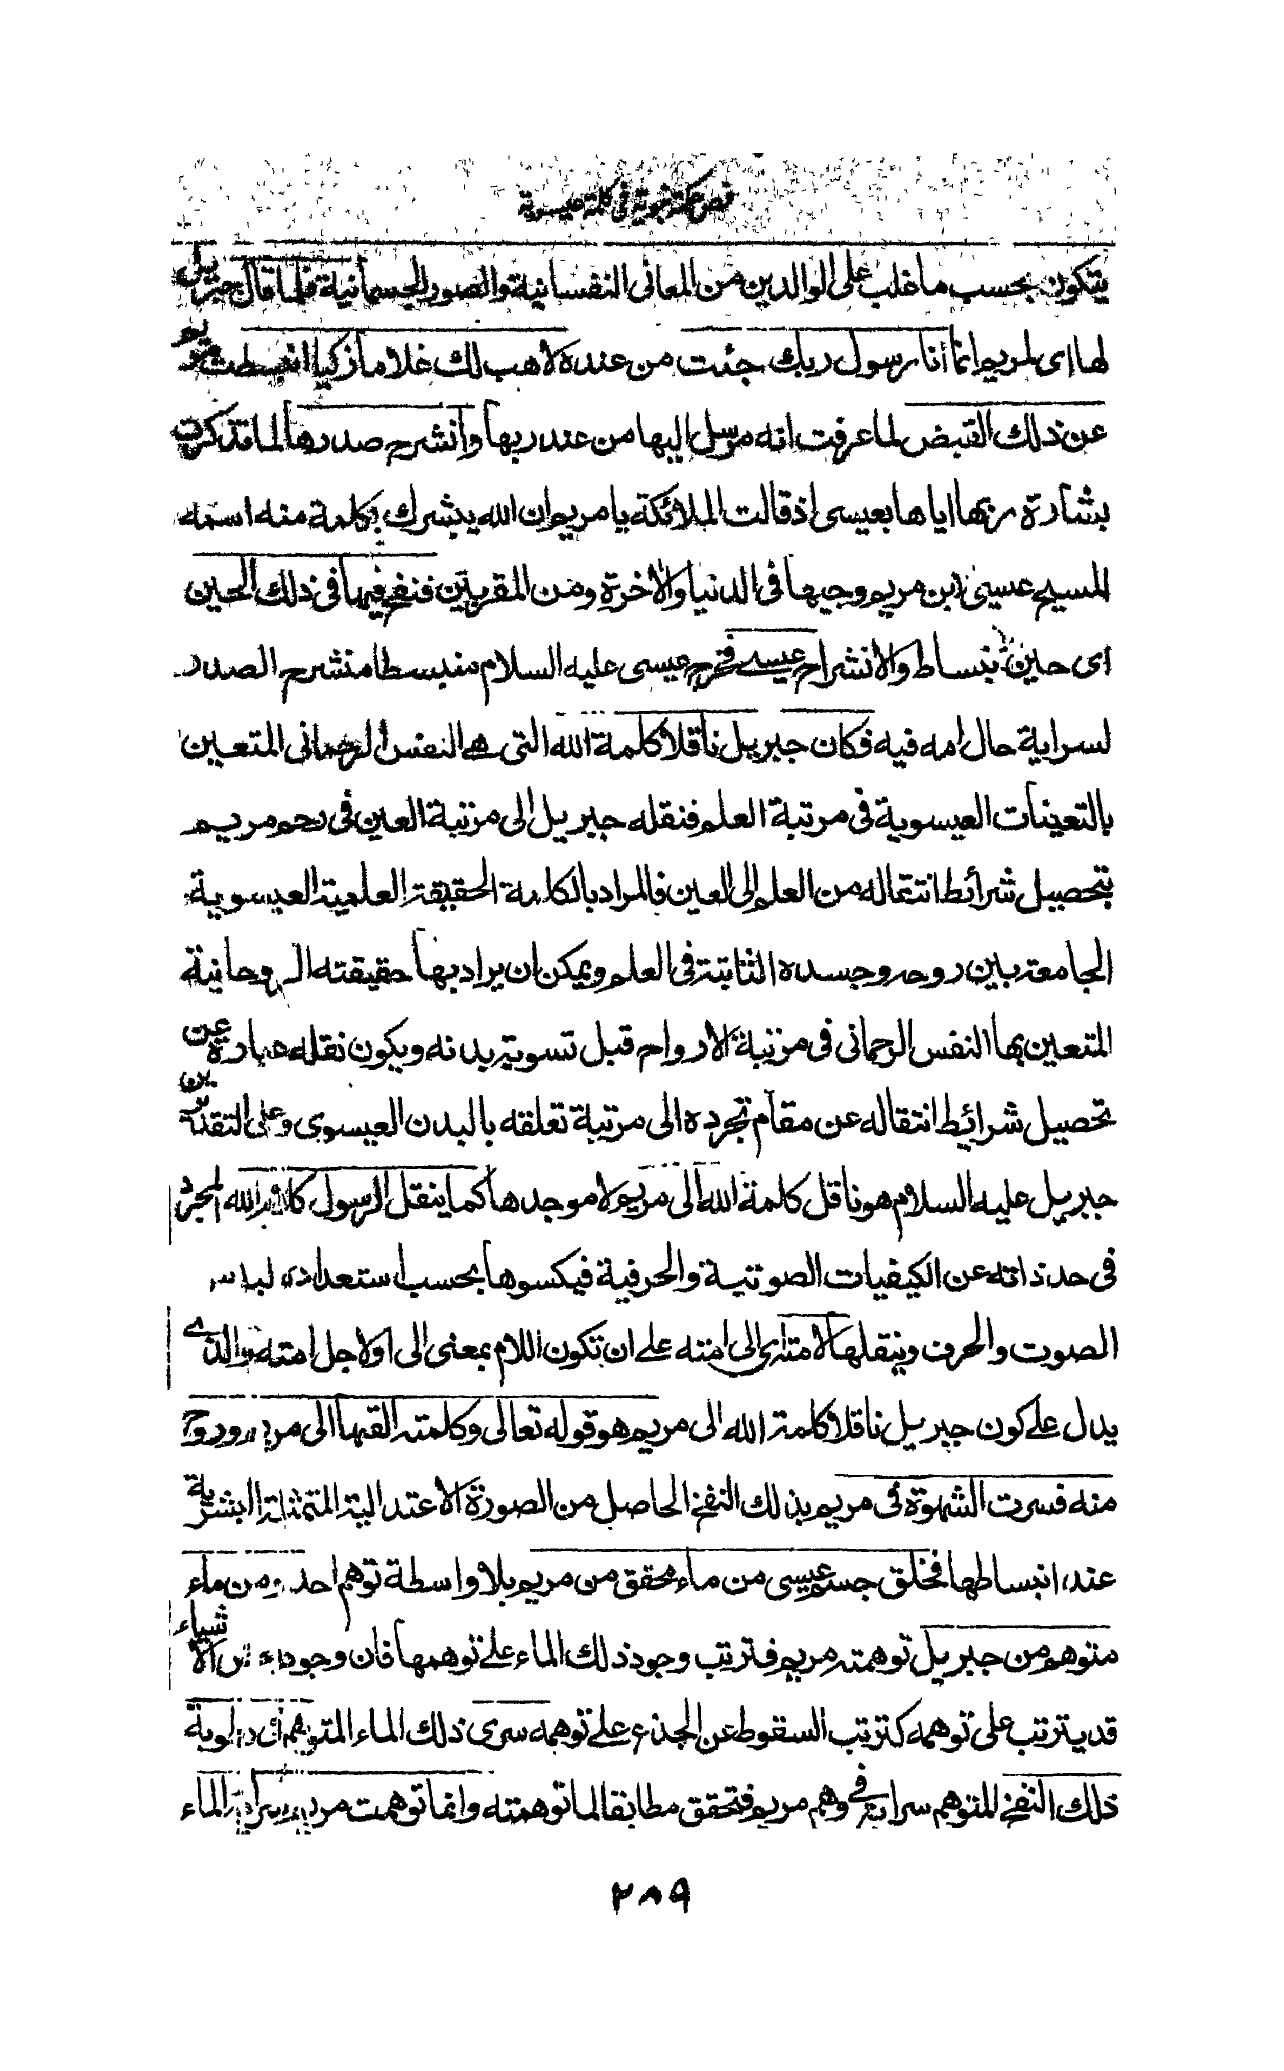 فص حكمة نبوية في كلمة عيسوية
يتكون بحسب ما غلب على الوالدين من المعانى النفسانية والصور الجسمانية فلما قال جبريل
لها اى لمريم انما أنا رسول ربك جئت من عنده لاهب لك غلاما زكيا انبسطت مريم
عن ذلك القبض لما عرفت انه مرسل اليها من عند ربها وانشرح صدرها لما تذكرت
بشارة ربها اياها بعيسى اذ قالت الملائكة يا مريم ان الله يبشرك بكلمة منه اسمه
المسيح عيسى ابن مريم وجيها فى الدنيا والاخرة ومن المقربين فنفخ فيها فى ذلك الحين
اى حين الانبساط والانشراح عيسى فخرج عيسى عليه السلام منبسطا منشرح الصدر
لسراية حال امه فيه فكان جبريل ناقلا كلمة الله التى هى النفس الرحمانى المتعين
بالتعينات العيسوية فى مرتبة العلم فنقله جبريل الى مرتبة العين فى رحم مريم
بتحصيل شرائط انتقاله من العلم الى العين فالمراد بالكلمة الحقيقة العلمية العيسوبية
الجامعة بين روحه وجسده الثابتة فى العلم ويمكن ان يراد بها حقيقته الروحانية
المتعين بها النفس الرحمانى فى مرتبة الارواح قبل تسوية بدنه ويكون نقله عبارة عن
تحصيل شرائط انتقاله عن مقام تجرده الى مرتبة تعلقه بالبدن العيسوى وعلى التقديرين
جبريل عليه السلام هو ناقل كلمة الله الى مريم لا موجدها كما ينقل الرسول كلام الله المجرد
فى حد ذاته عن الكيفيات الصوتية والحرفية فيكسوها بحسب استعداده لباس
الصوت والحرف وينقلها لامته اى الى امته على ان تكون اللام بمعنى الى او لاجل امته والذى
يدل على كون جبريل ناقلا كلمة الله الى مريم هو قوله تعالى وكلمته القيها الى مريم وروح
منه فسرت الشهوة فى مريم بذلك النفخ الحاصل من الصورة الاعتدالية المتمثلة البشرية
عند انبساطها فخلق جسم عيسى من ماء محقق من مريم بلا واسطة توهم احد ومن ماء
متوهم من جبريل توهمته مريم فترتب وجود ذلك الماء على توهمها فان وجود بعض الاشياء
قد يترتب على توهمه كترتب السقوط عن الجذع على توهمه سرى ذلك الماء المتوهم فى رطوبة
ذلك النفخ المتوهم سرايته فى وهم مريم فتحقق مطابقا لما توهمته وانما توهمت مريم سراية الماء
٢٨٩